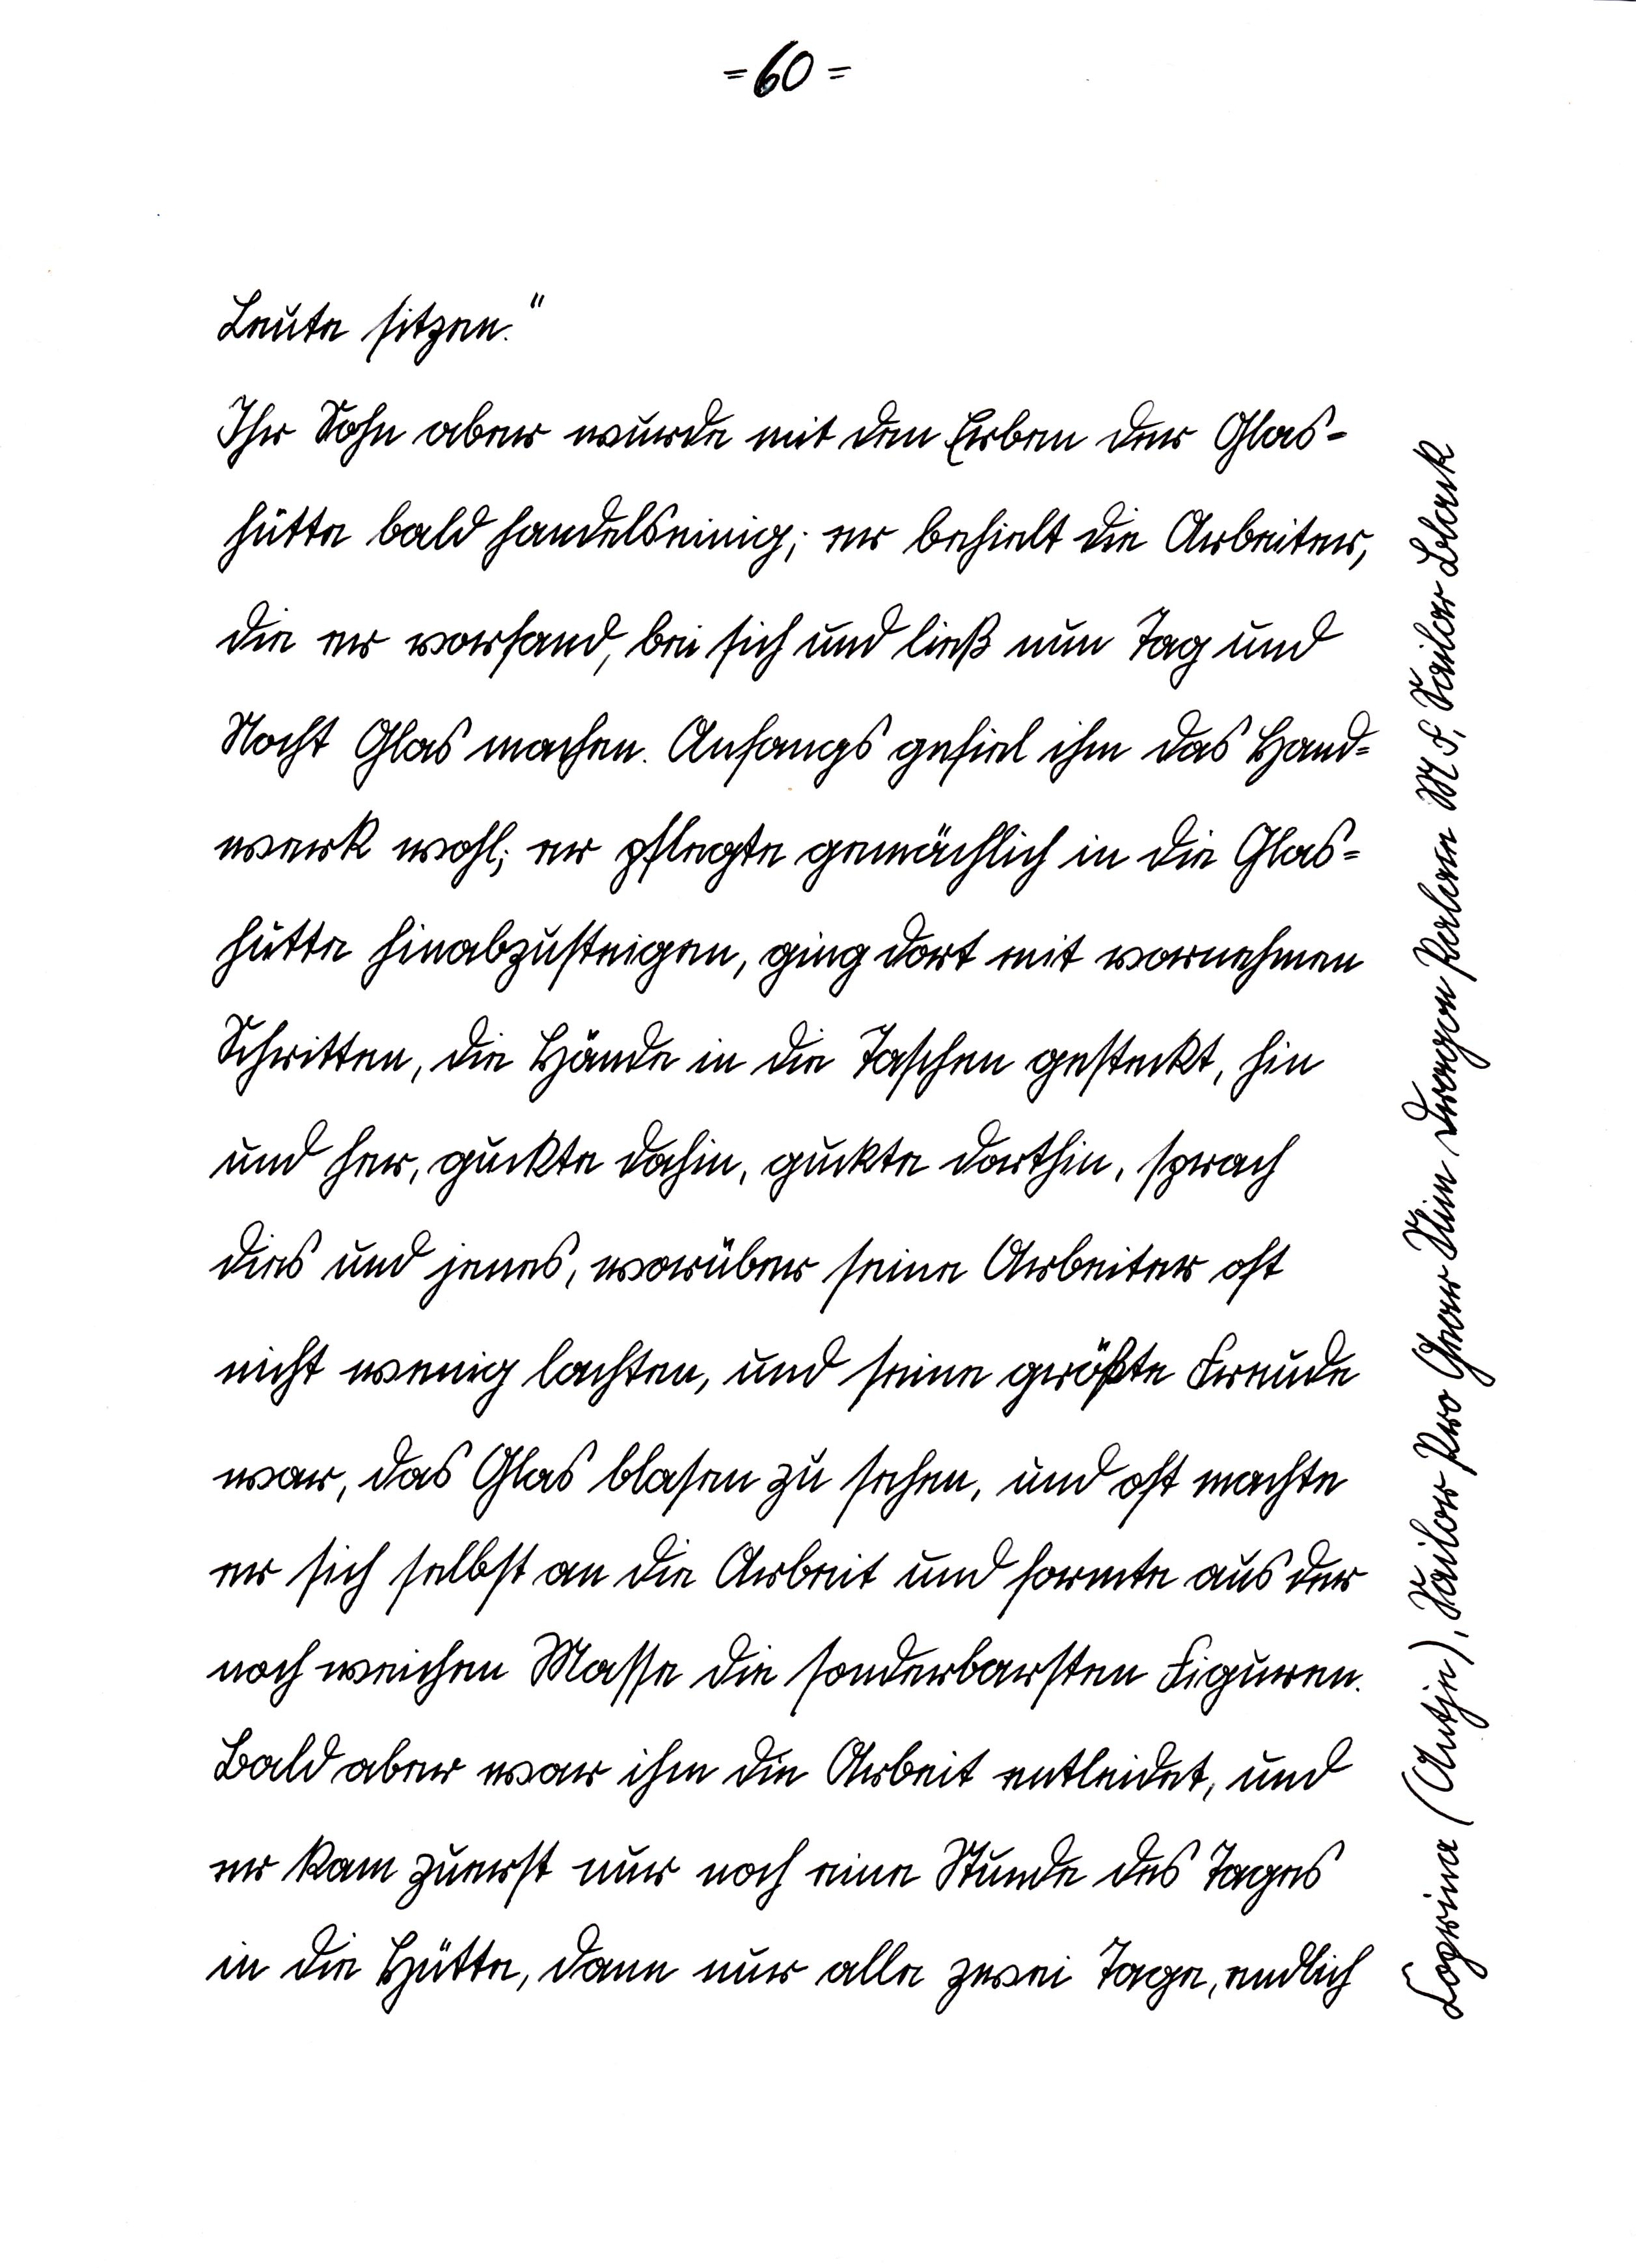 =60=
Leute sitzen."
Ihr Sohn aber wurde mit den Erben der Glas-
hütte bald handelseinig; er behielt die Arbeiter,
die er vorfand, bei sich und ließ nun Tag und
Nacht Glas machen. Anfangs gefiel ihm das Hand-
werk wohl; er pflegte gemächlich in die Glas-
hütte hinabzusteigen, ging dort mit vornehmen
Schritten, die Hände in die Taschen gesteckt, hin
und her, guckte dahin, guckte dorthin, sprach
dies und jenes, worüber seine Arbeiter oft
nicht wenig lachten, und seine größte Freude
war, das Glas blasen zu sehen, und oft machte
er sich selbst an die Arbeit und formte aus der
noch weichen Masse die sonderbarsten Figuren.
Bald aber war ihm die Arbeit entleidet, und
er kam zuerst nur noch eine Stunde des Tages
in die Hütte, dann nur alle zwei Tage, endlich
(Antje), Sailor Pro Gear Slim Dragon Palace M F, Sailor Black